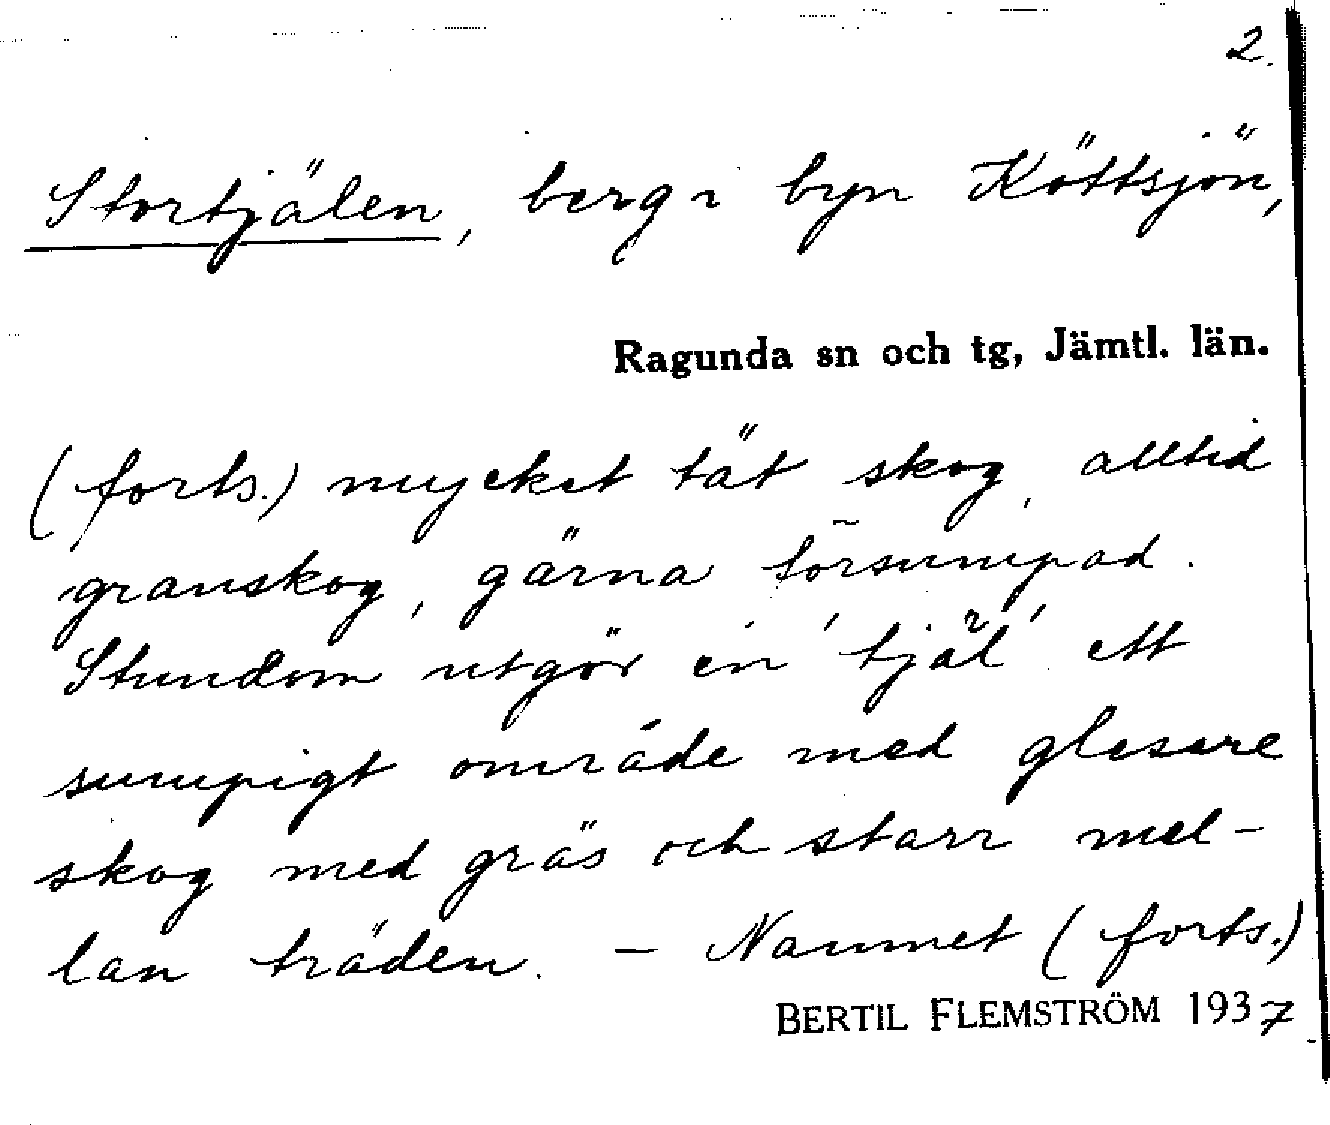 2.
Stortjälen, berg i byn Köttsjön,
Ragunda sn och tg, Jämtl. län.
(forts.) mycket tät skog, alltid
granskog, gärna försumpad.
Stundom utgör en 'tjäl' ett
sumpigt område med glesare
skog med gräs och starr mel-
lan träden. – Namnet (forts.)
BERTIL FLEMSTRÖM 1937